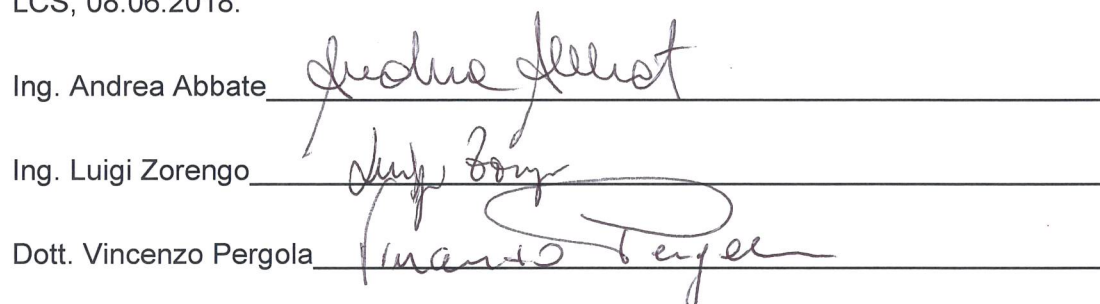 LCS, 08.06.2018.
Ing. Andrea Abbate Andrea Abbat
Ing. Luigi Zorengo Luigi
Dott. Vincenzo Pergola Vincenzo Pergola